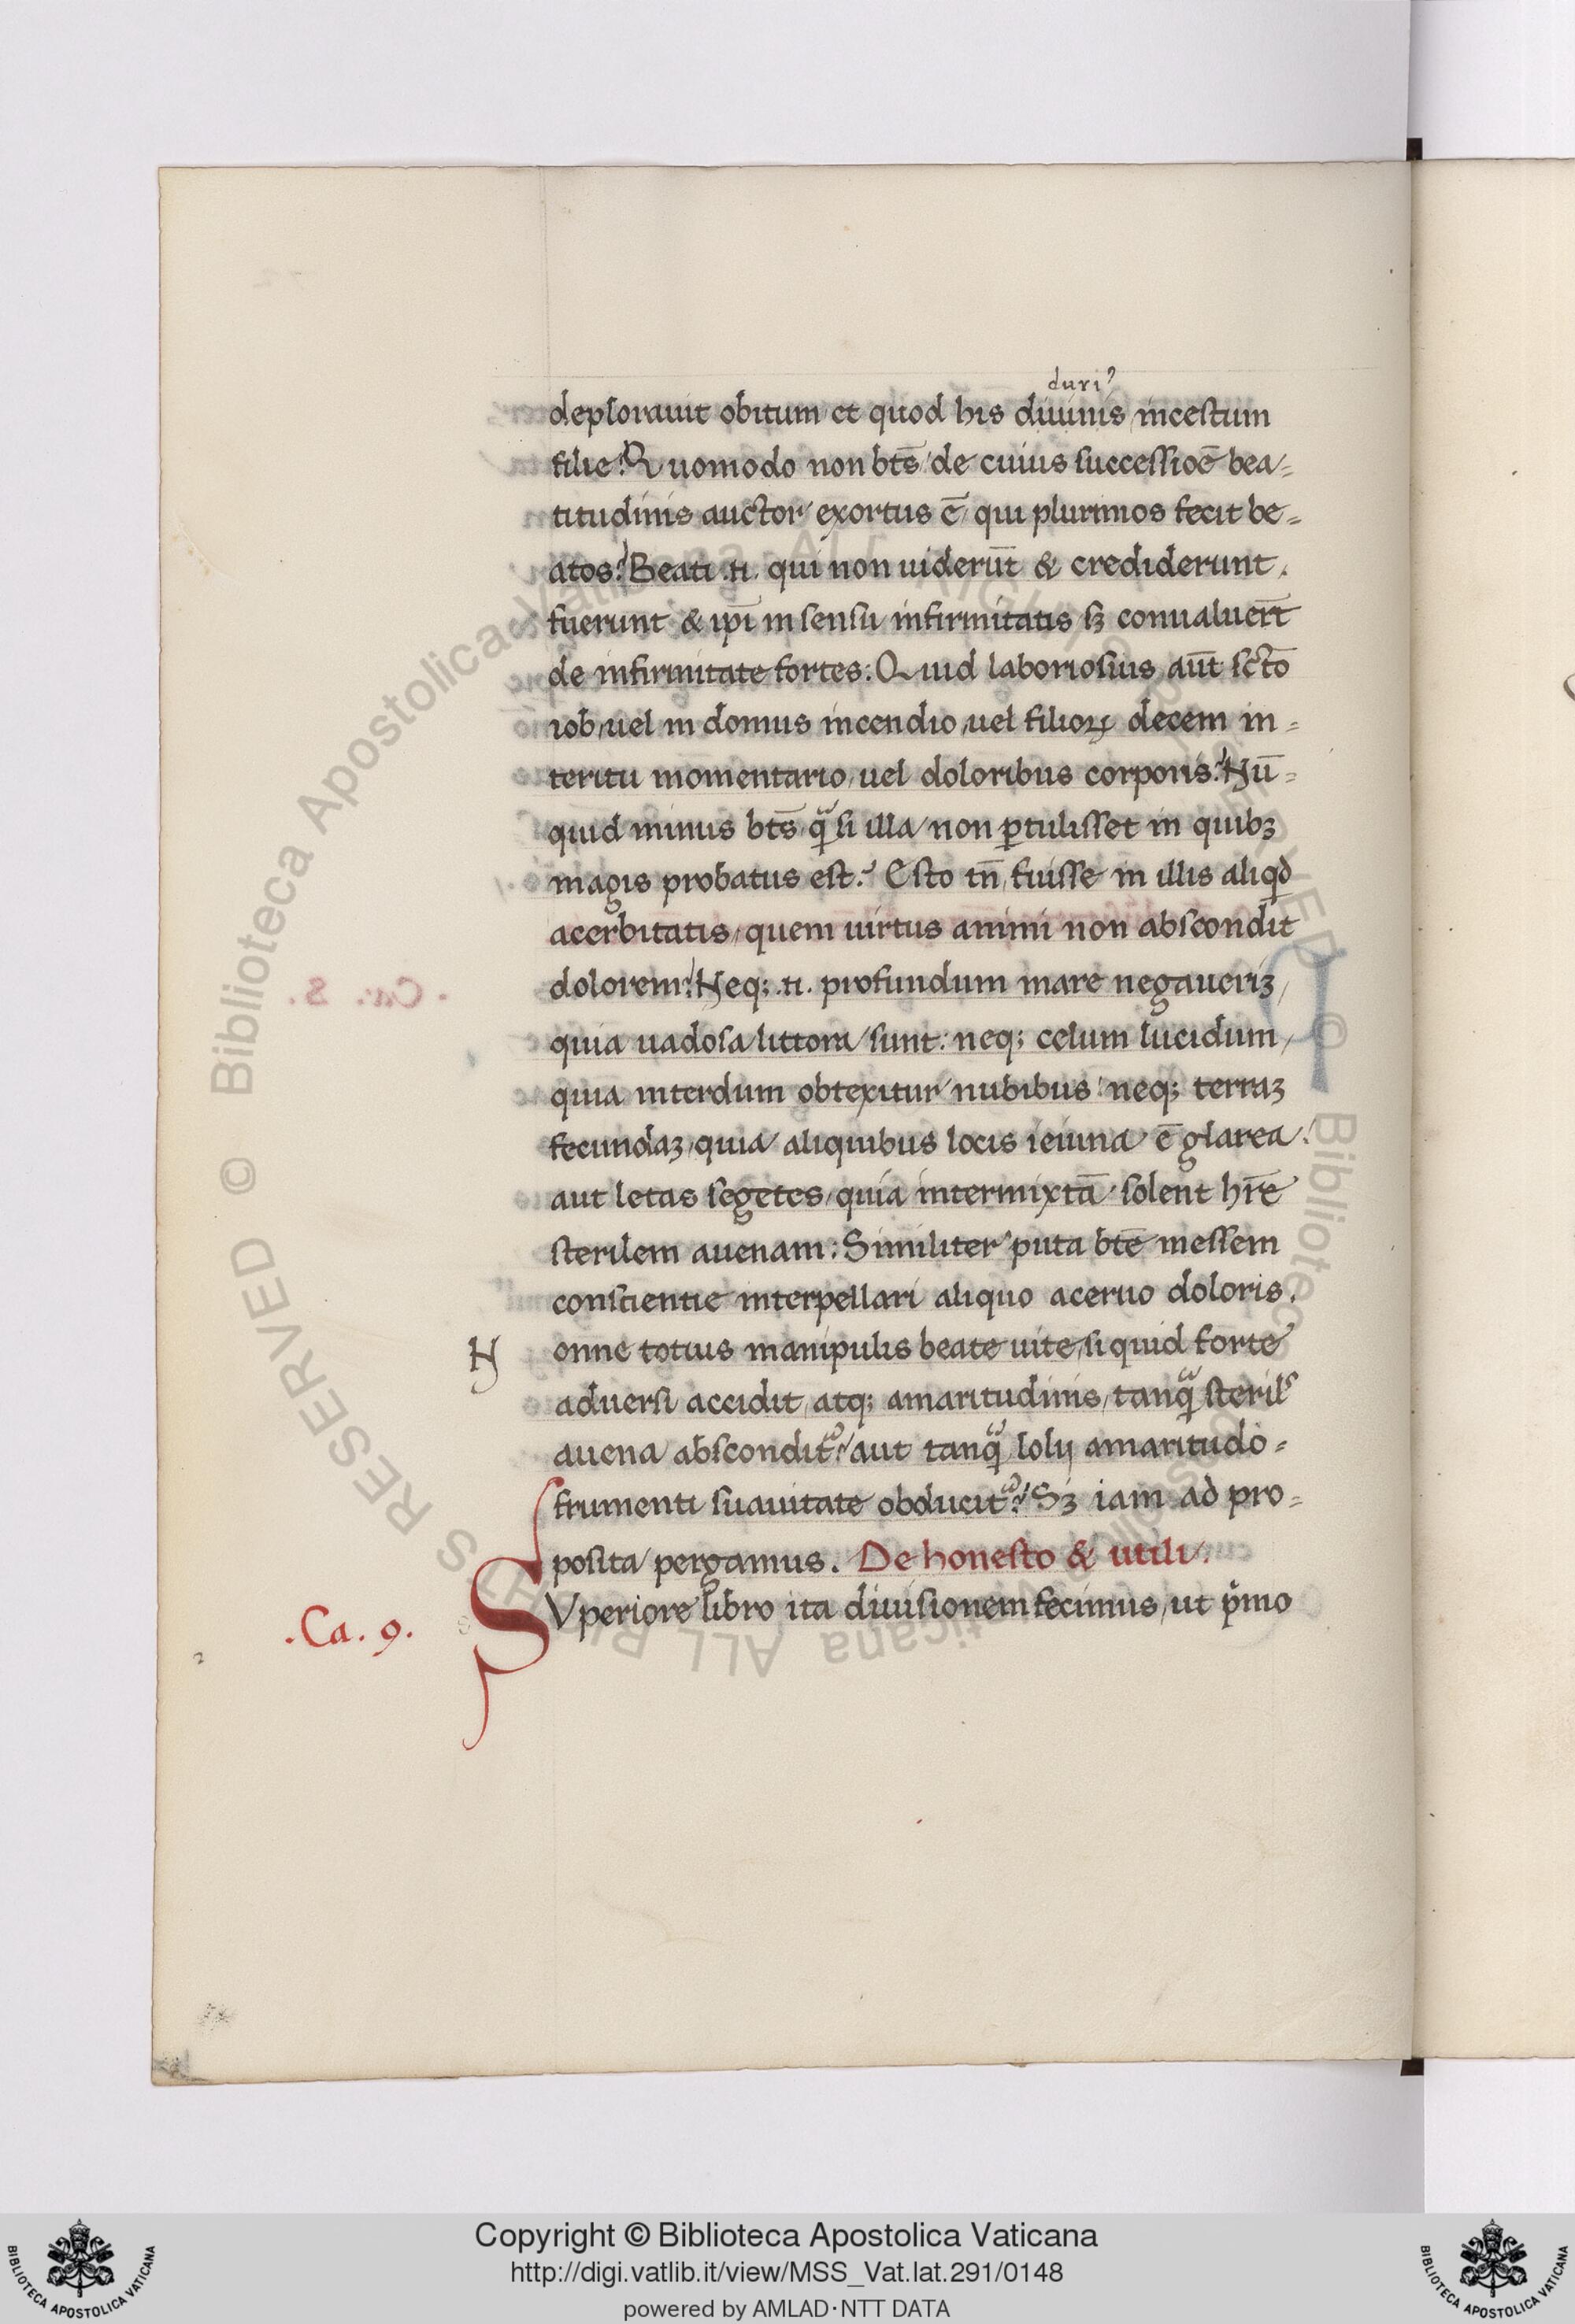 duri⁹
deplorauit obitum et quod his diuinis incestum
filie? Quomodo non bt̄s de cuius successioē bea=
titudinis auctor exortus ē qui plurimos fecit be=
atos? Beati .n. qui non uiderūt & crediderunt.
fuerunt & ip̄i in sensu infirmitatis sꝫ conualuer̄t
de infirmitate fortes: Quid laboriosius aūt sc̄to
iob, uel in domus incendio, uel filioꝝ decem in=
teritu momentario, uel doloribus corporis? Nū=
quid minus bt̄s qͣ si illa non ꝑtulisset in quibꝫ
magis probatus est? Esto tn̄ fuisse in illis aliqd̄
acerbitatis, quem uirtus animi non abscondit
dolorem? Neqꝫ .n. profundum mare negaueriꝫ,
quia uadosa littora sunt: neqꝫ celum lucidum,
quia interdum obtexitur nubibus: neqꝫ terraꝫ
fecundaꝫ, quia aliquibus locis ieiuna ē glarea:
aut letas segetes, quia intermixtā solent hr̄e
sterilem auenam: Similiter puta bt̄e messem
conscientie interpellari aliquo aceruo doloris.
Nonne totius manipulis beate uite, si quid forte
aduersi accidit, atqꝫ amaritudinis, tanqͣ sterilˢ
auena absconditᷣ? aut tanqͣ lolij amaritudo=
frumenti suauitate obducitᷣ? Sꝫ iam ad pro=
posita pergamus. De honesto & utili.
SVperiore libro ita diuisionem fecimus, ut pͥmo
.Ca. 9.
Copyright © Biblioteca Apostolica Vaticana
http://digi.vatlib.it/view/MSS_Vat.lat.291/0148
powered by AMLAD·NTT DATA
BIBLIOTECA APOSTOLICA VATICANA
BIBLIOTECA APOSTOLICA VATICANA